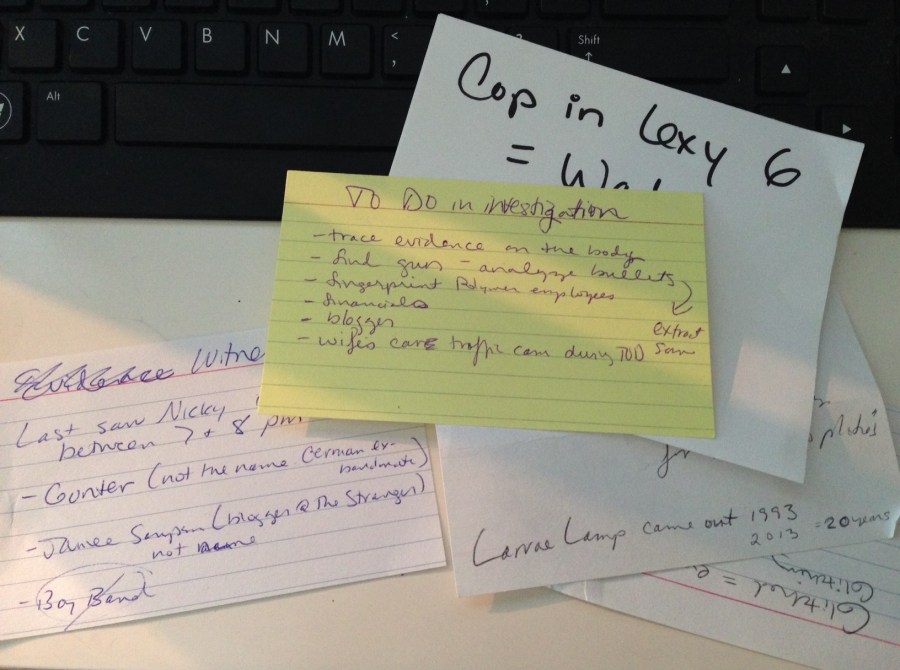 X C V B N M < ,
Shift
Alt
Cop in Lexy 6
=
To Do in investigation
- trace evidence on the body
- find gun - analyze bullets
- fingerprint Polymer employees
- financials
- blogger
extract
- wife's car traffic cam during TOD
Last saw Nicky
between 7 + 8 pm
- Gunter (not the name German ex-
bandmate)
- Jamee Sampson (blogger @ The Stranger)
not name
- Boy Band
Larvae Lamp came out 1993
2013 = 20 years
Glitching
Glitched =